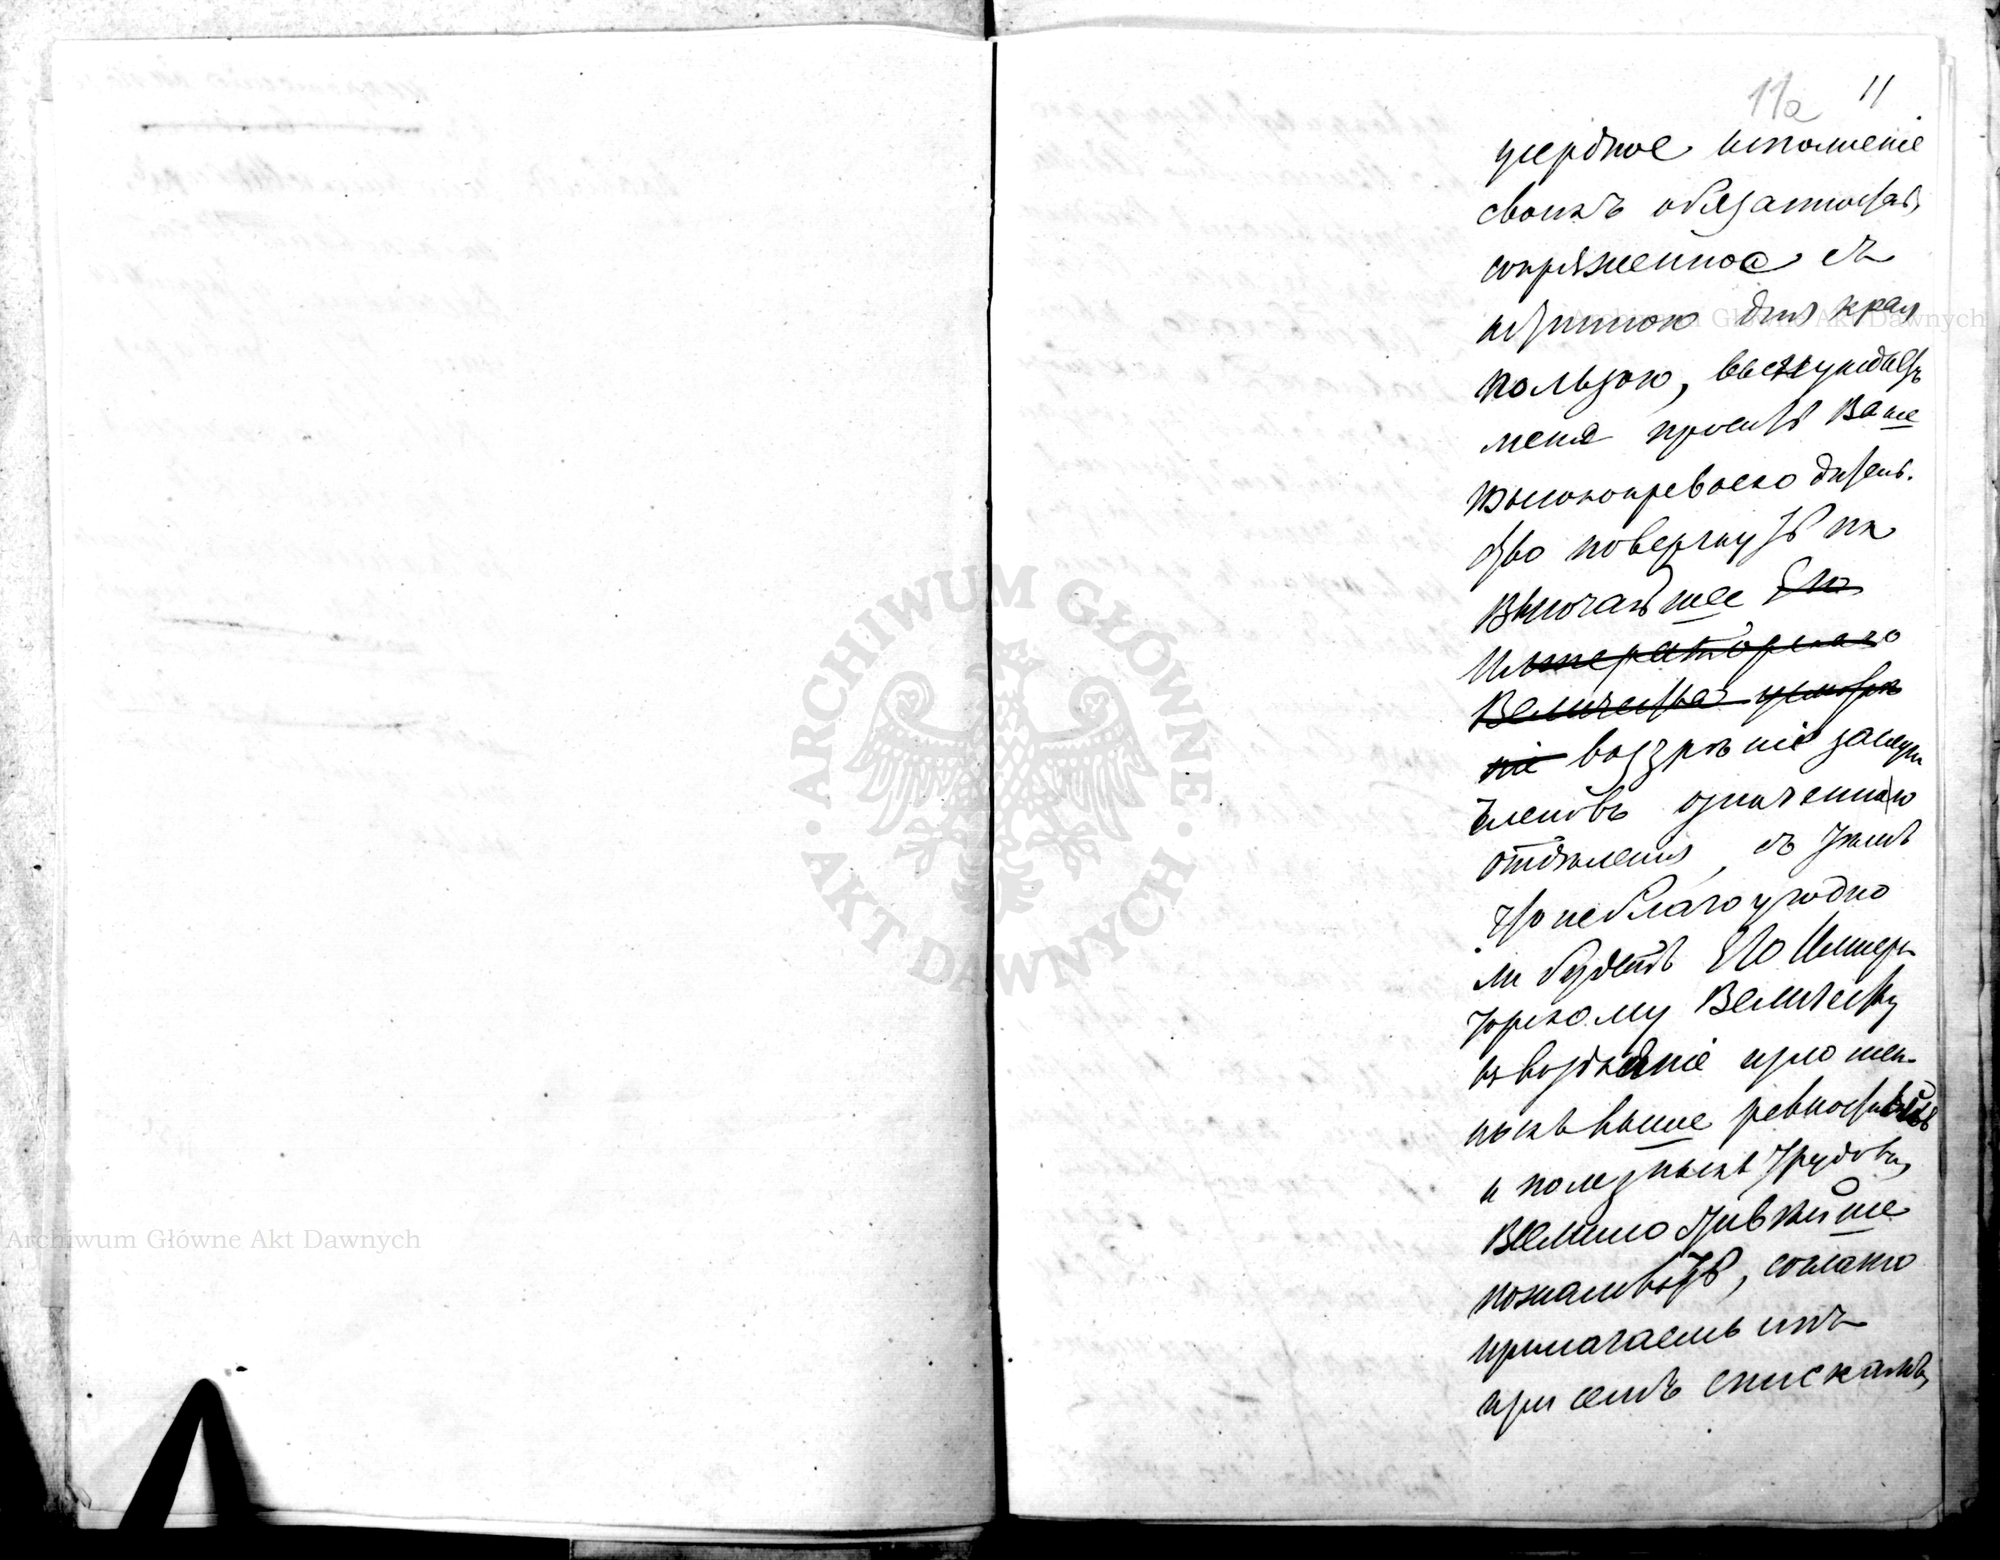 11а 11
усердное исполненіе
своихъ обязанностей,
сопряженное съ
истинною для края
пользою, вынуждаетъ
меня просить Ваше
Высокопревосходитель-
ство повергнуть на
Высочайшее Его
Императорскаго
Величества усмотрѣ
ніе воззрѣніе заслуги
членовъ означеннаго
отдѣленія, съ тѣмъ
что не благоугодно
ли будетъ Его Импера
торскому Величеству
въ воздаяніе изложен-
ныхъ выше ревностныхъ
и полезныхъ трудовъ,
Всемилостивѣйше
пожаловать, согласно
прилагаемымъ
при семъ спискамъ,
ARCHIWUM GŁÓWNE · AKT DAWNYCH ·
Archiwum Główne Akt Dawnych
Archiwum Główne Akt Dawnych